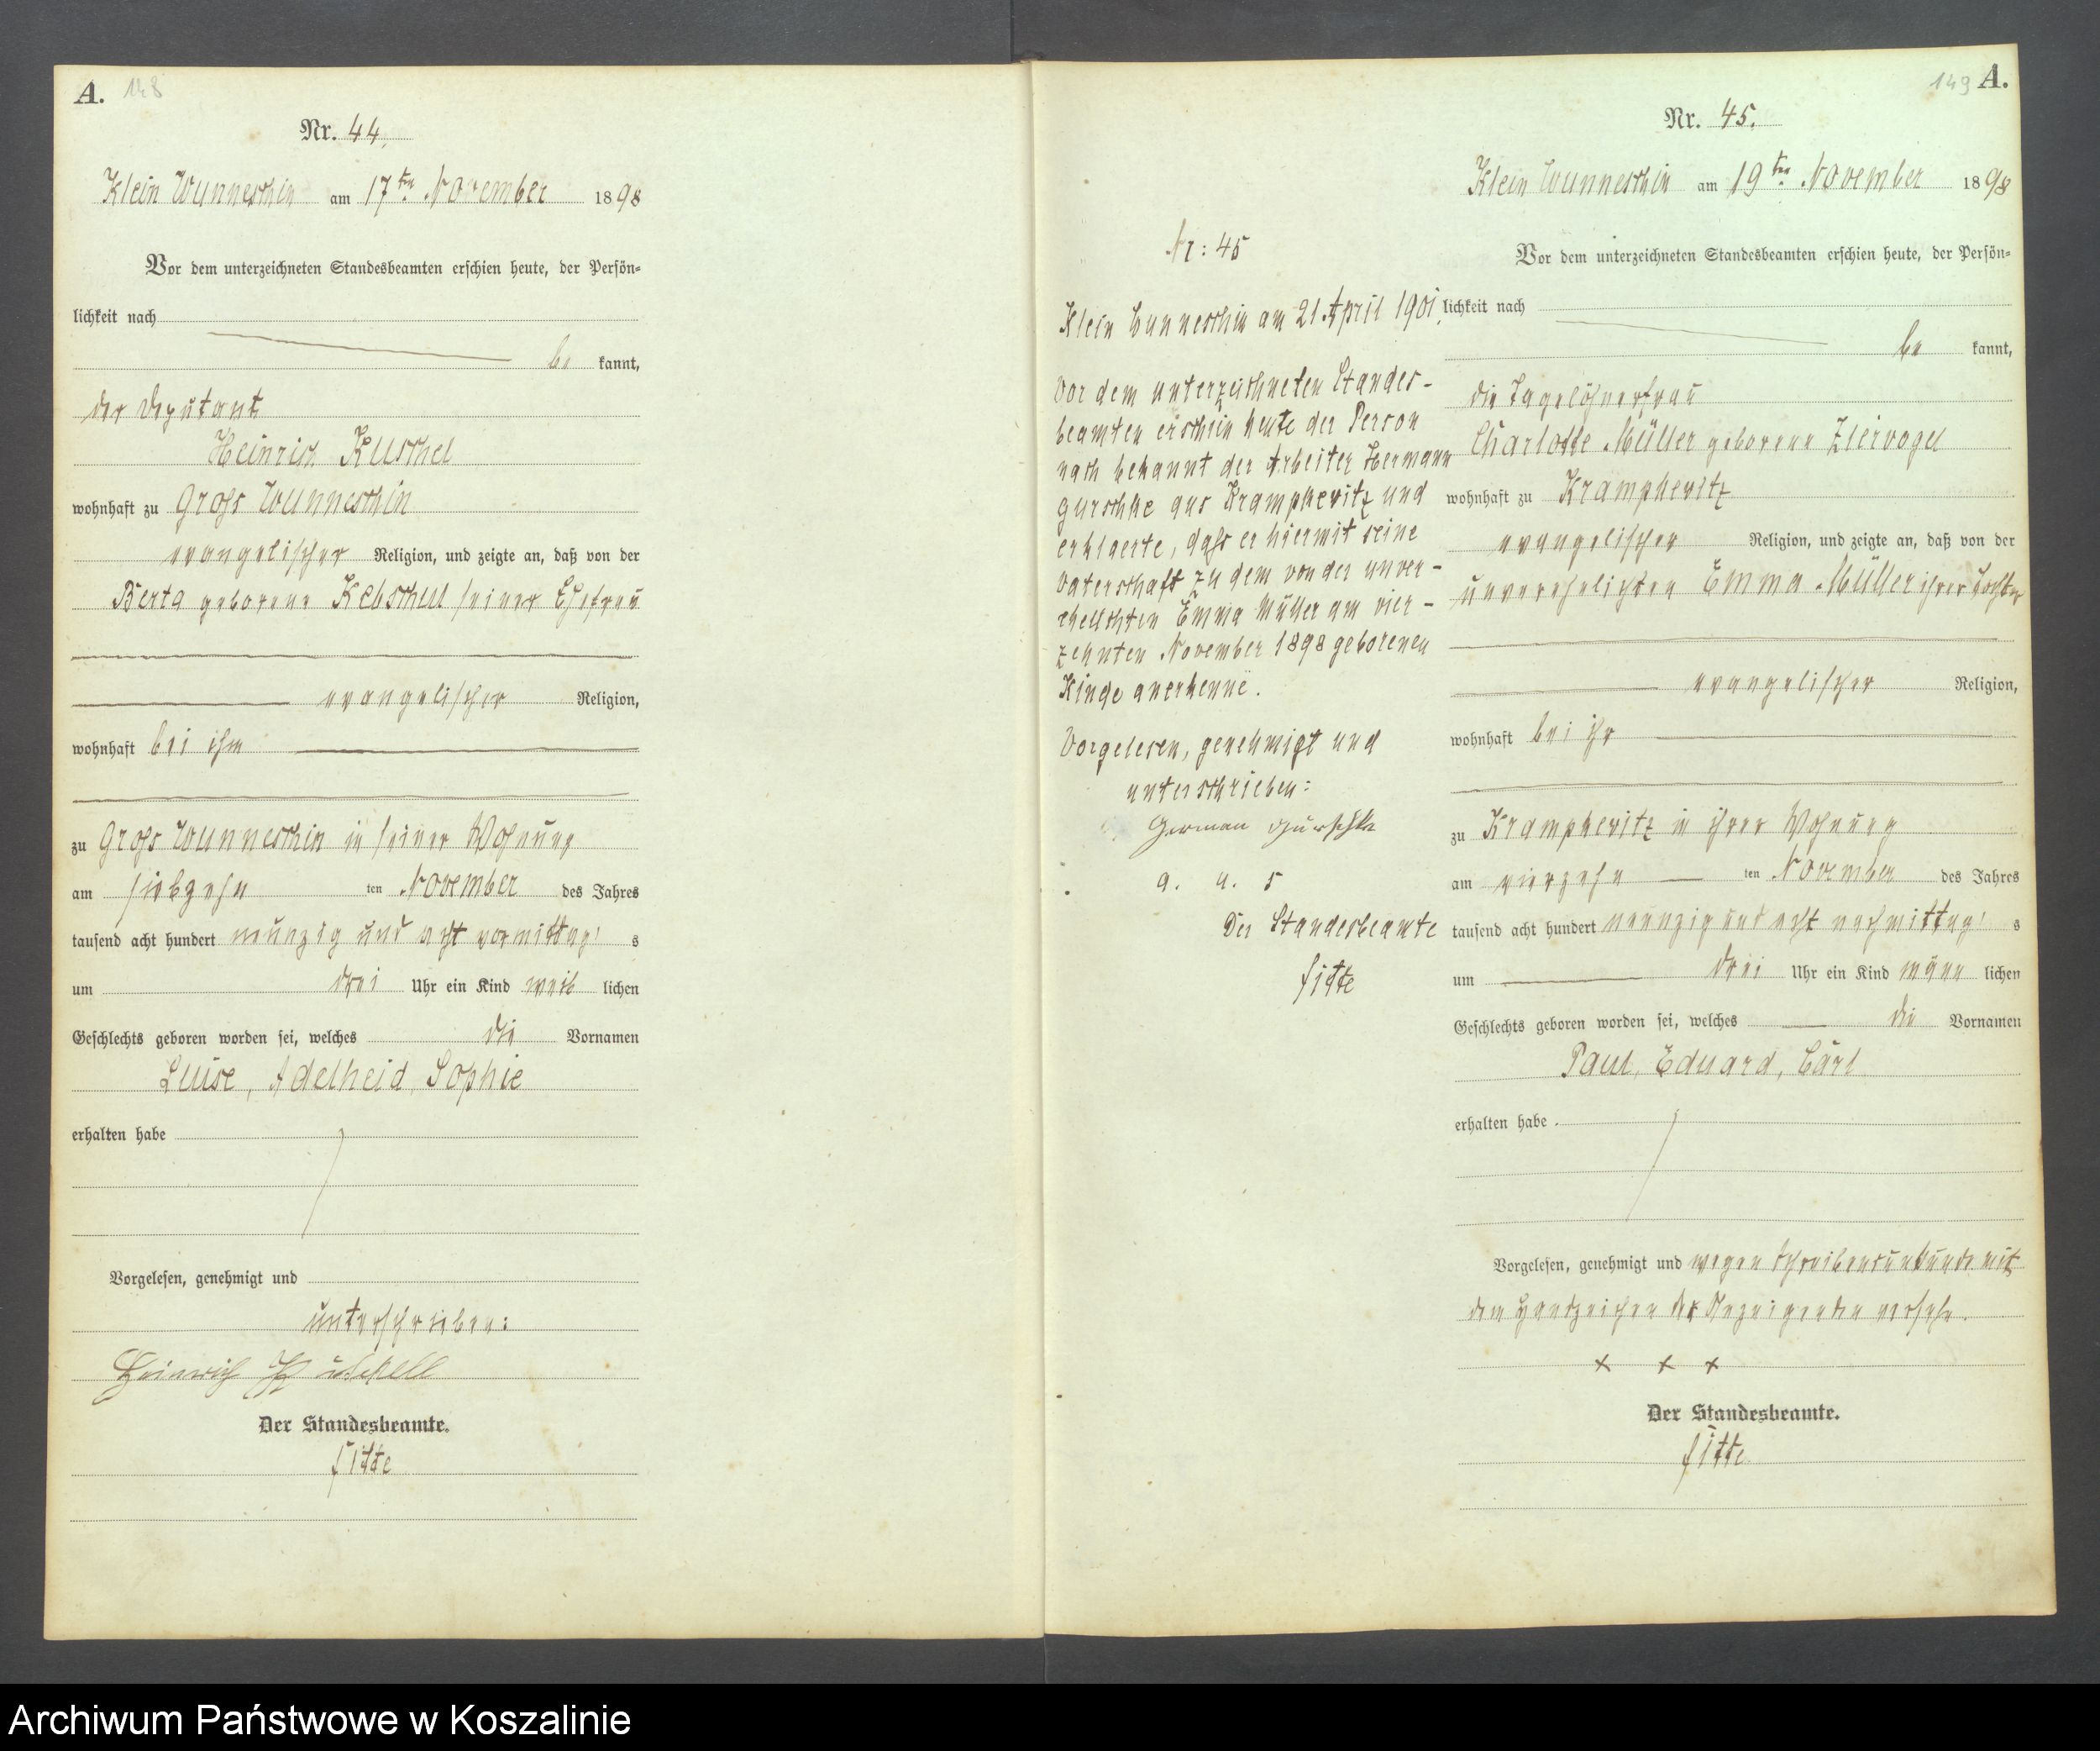 A. 148
Nr. 44.
Klein Wunneschin am 17ten November 1898
Vor dem unterzeichneten Standesbeamten erschien heute, der Persön-
lichkeit nach
be kannt,
der Deputant
Heinrich Kuschel
wohnhaft zu Groß Wunneschin
evangelischer Religion, und zeigte an, daß von der
Berta geborene Kebschul seiner Ehefrau
evangelischer Religion,
wohnhaft bei ihm
zu Groß Wunneschin in seiner Wohnung
am siebzehn ten November des Jahres
tausend acht hundert neunzig und acht vormittag s
um drei Uhr ein Kind weib lichen
Geschlechts geboren worden sei, welches die Vornamen
Luise, Adelheid, Sophie
erhalten habe
Vorgelesen, genehmigt und
unterschrieben:
Heinrich Kuschell
Der Standesbeamte.
Fitte
Nr: 45
Klein Wunneschin am 21 April 1901.
Vor dem unterzeichneten Standes-
beamten erschien heute der Person
nach bekannt der Arbeiter Hermann
Gurschke aus Krampkewitz und
erklaerte, dass er hiermit seine
Vaterschaft zu dem von der unver-
ehelichten Emma Müller am vier-
zehnten November 1898 geborenen
Kinde anerkenne.
Vorgelesen, genehmigt und
unterschrieben:
Herman Gurschke
Der Standesbeamte
Fitte
149 A.
Nr. 45.
Klein Wunneschin am 19ten November 1898
Vor dem unterzeichneten Standesbeamten erschien heute, der Persön-
lichkeit nach
be kannt,
die Tagelöhnerfrau
Charlotte Müller geborene Ziervogel
wohnhaft zu Krampkewitz
evangelischer Religion, und zeigte an, daß von der
unverehelichten Emma Müller ihrer Tochter
evangelischer Religion,
wohnhaft bei ihr
zu Krampkewitz in ihrer Wohnung
am vierzehn ten November des Jahres
tausend acht hundert neunzig und acht nachmittag s
um drei Uhr ein Kind männ lichen
Geschlechts geboren worden sei, welches die Vornamen
Paul, Eduard, Carl
erhalten habe.
Vorgelesen, genehmigt und wegen Schreibensunkunde mit
dem Handzeichen der Anzeigenden versehn.
x x x
Der Standesbeamte.
Fitte
Archiwum Państwowe w Koszalinie